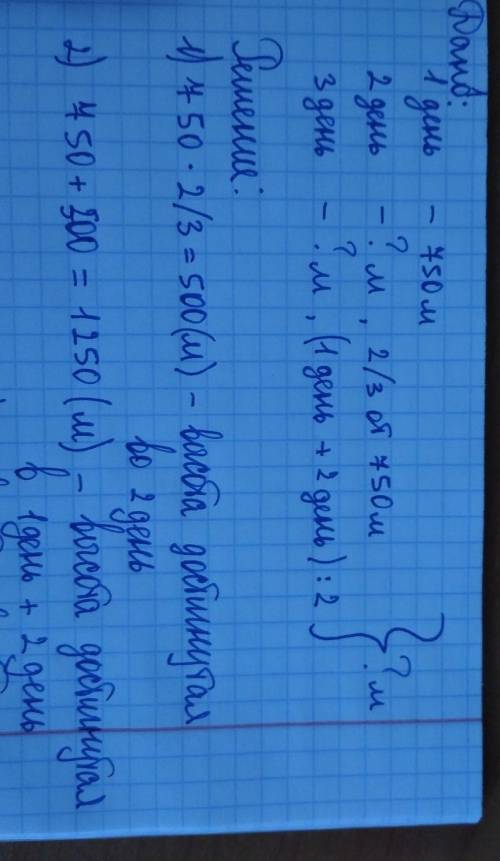 Дано:
1 день - 750 м
2 день - ? м, 2/3 от 750 м
3 день - ? м, (1 день + 2 день) : 2
? м
Решение:
1) 750 · 2/3 = 500 (м) - высота достигнутая
во 2 день
2) 750 + 500 = 1250 (м) - высота достигнутая
в 1 день + 2 день